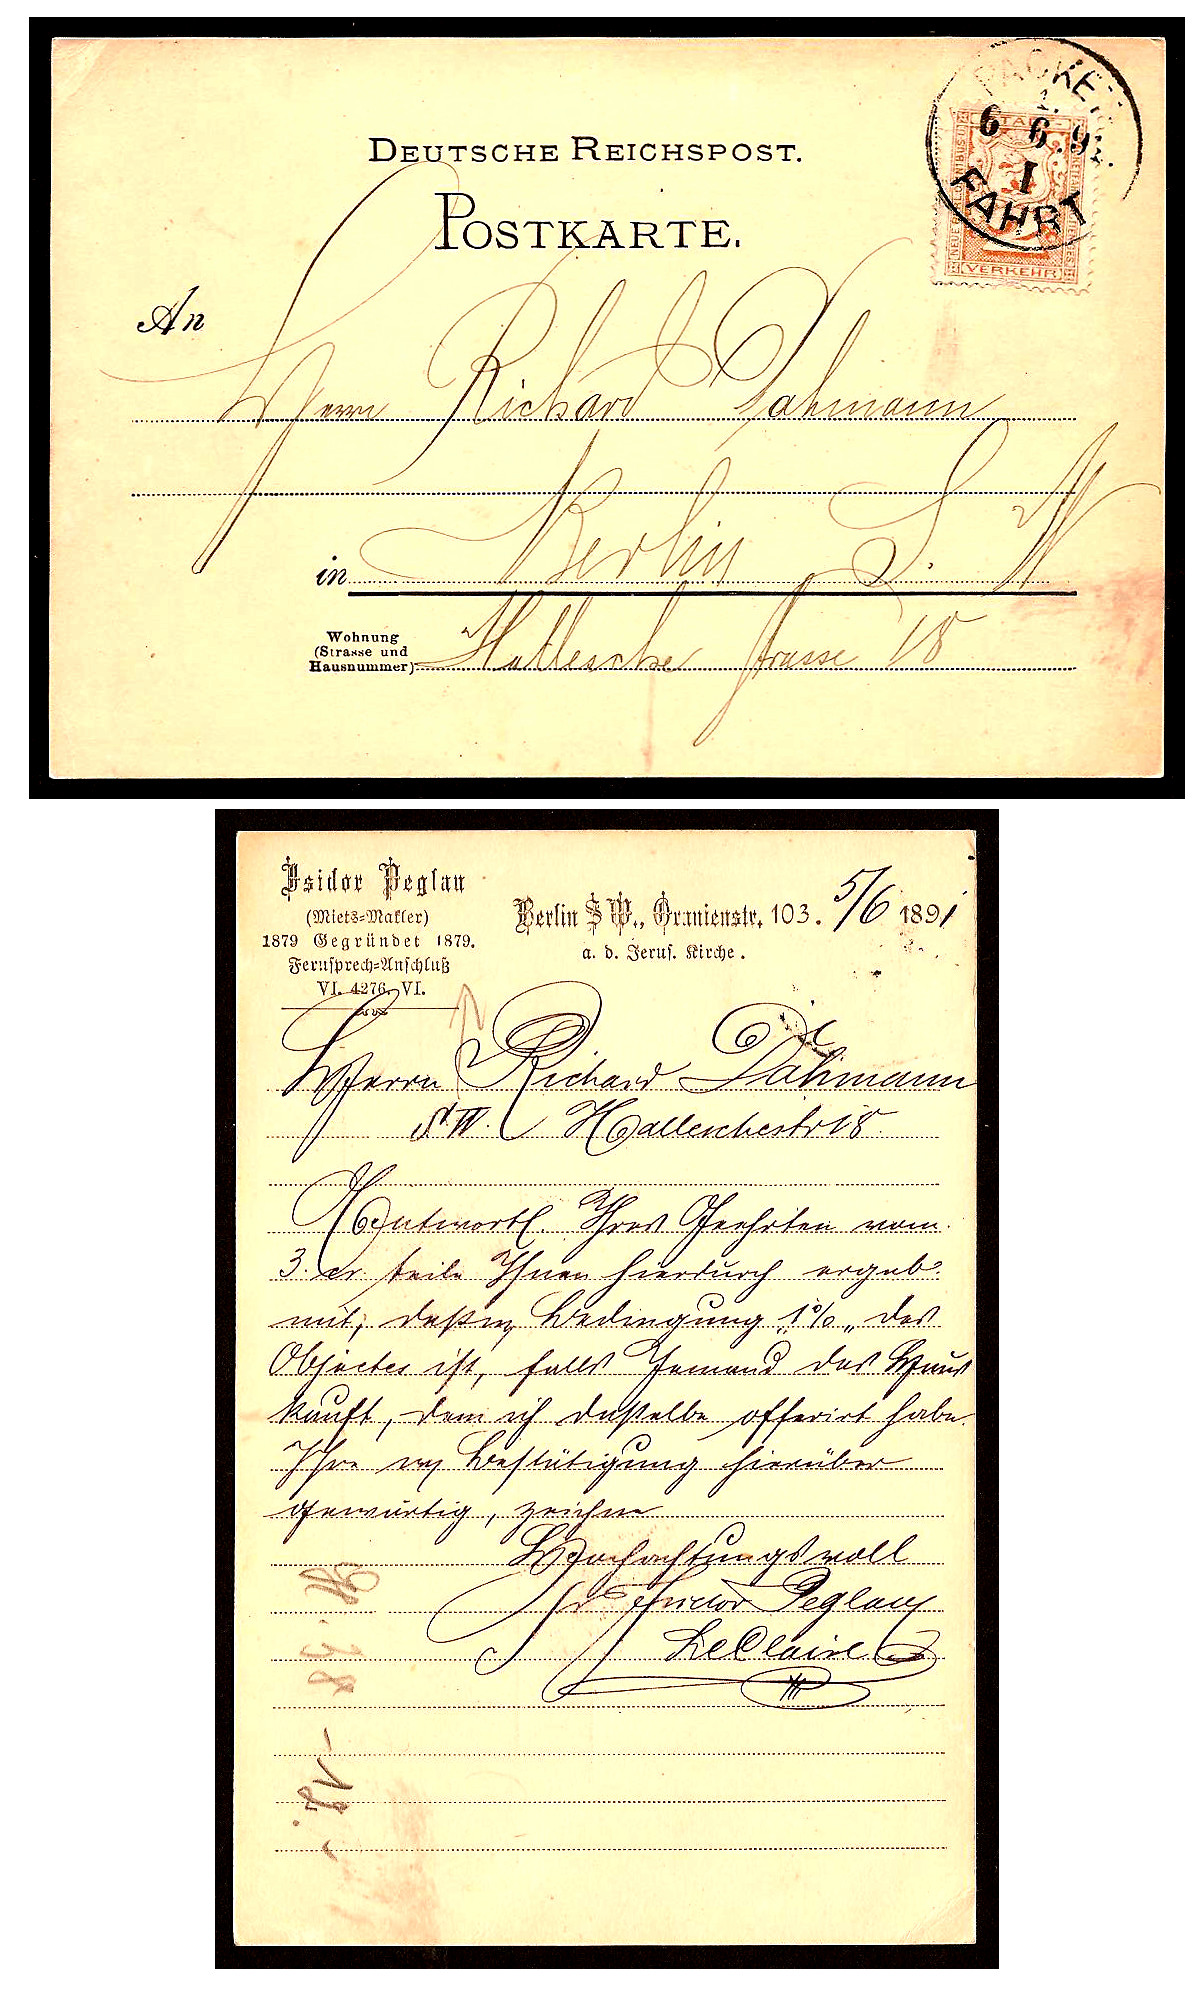 DEUTSCHE REICHSPOST.
POSTKARTE.
PACKET
6 6.9
I
FAHRT
STADT
VERKEHR
An
Herrn Richard Dahmann
in Berlin S. W
Wohnung
(Strasse und
Hausnummer)
Hallesche strasse 18
Isidor Peglau
(Miets-Makler)
1879 Gegründet 1879.
Fernsprech-Anschluß
VI. 4276. VI.
Berlin SW., Oranienstr. 103. 5/6 1891
a. d. Jerus. Kirche.
Herrn Richard Dahmann
S.W. Halleschestr 18.
Antwortl. Ihres Geehrten vom
3. cr. teile Ihnen hierdurch ergeb.
mit, daß m/ Bedingung „1%„ des
Objectes ist, falls Jemand das Haus
kauft, dem ich dasselbe offerirt habe.
Ihre Bestätigung hierüber
gewärtig, zeichne
Hochachtungsvoll
Isidor Peglau
LeClaire